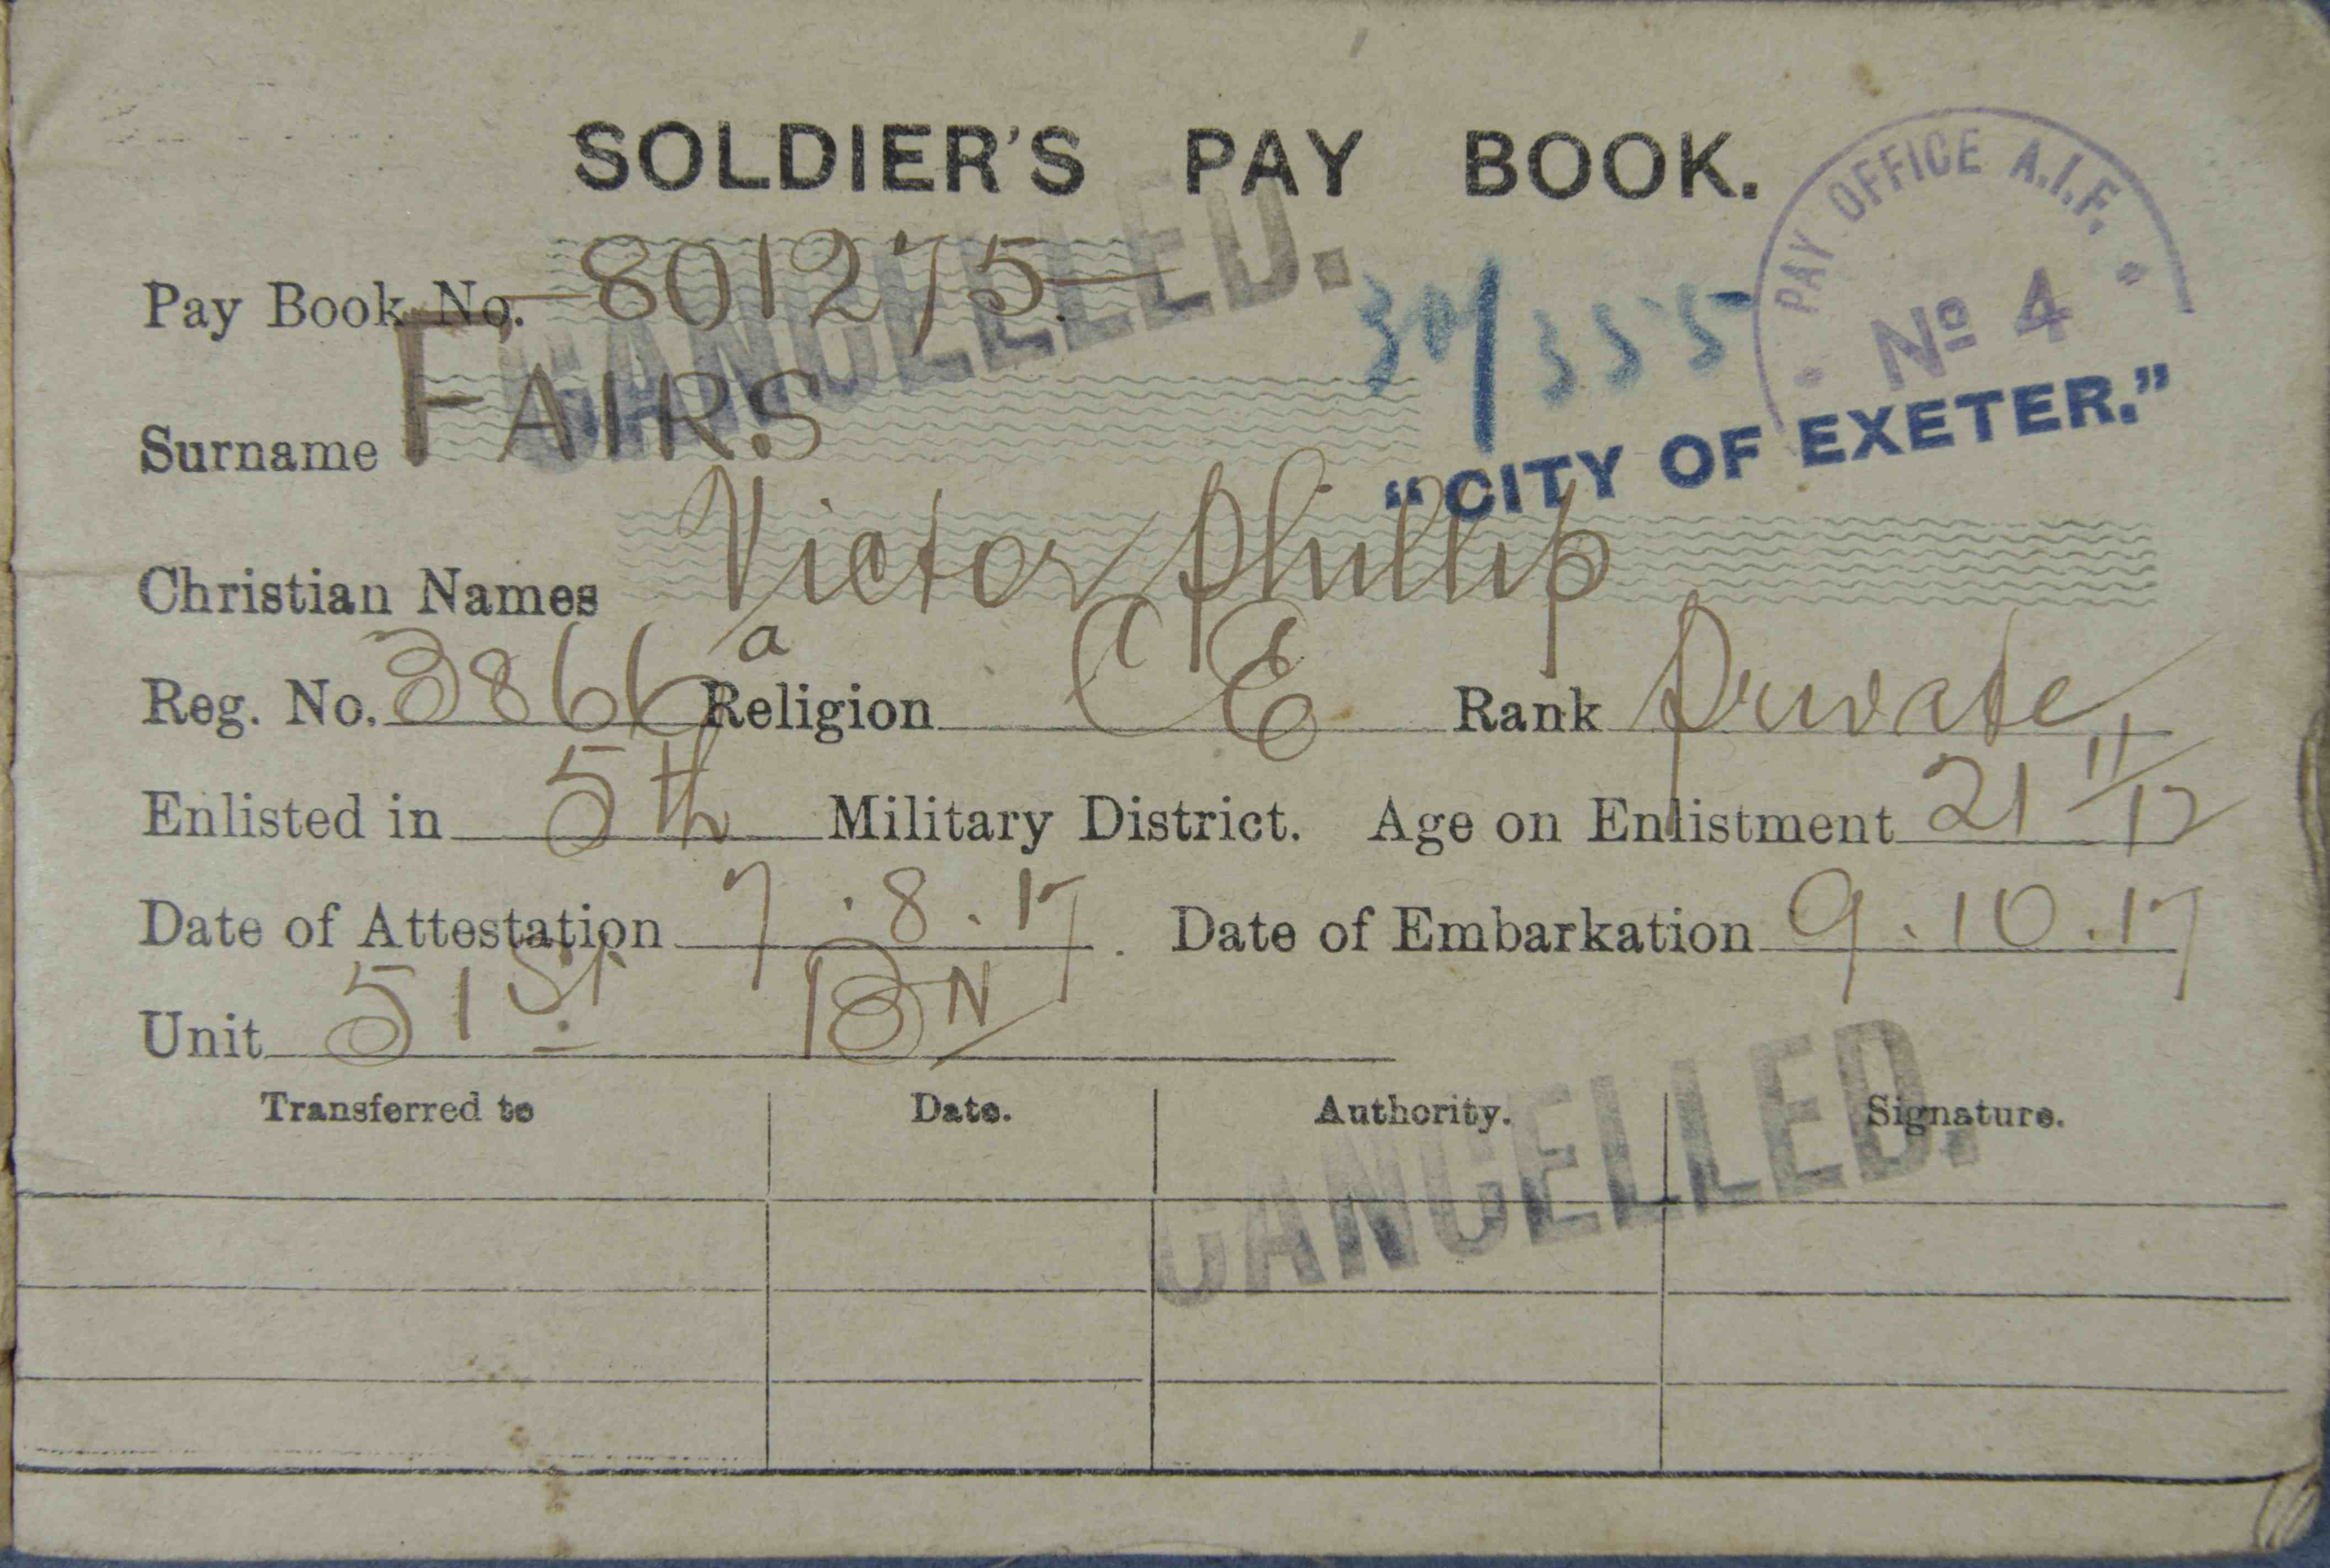 SOLDIER'S PAY BOOK.
PAY OFFICE A.I.F.
Nº 4
Pay Book No. 801275
CANCELLED.
30/355
"CITY OF EXETER."
Surname FAIRS
Christian Names Victor Phillip
Reg. No. 3866a Religion CE Rank Private
Enlisted in 5th Military District. Age on Enlistment 21 11/12
Date of Attestation 7.8.17. Date of Embarkation 9.10.17
Unit 51st BN
Transferred to Date. Authority. Signature.
CANCELLED.